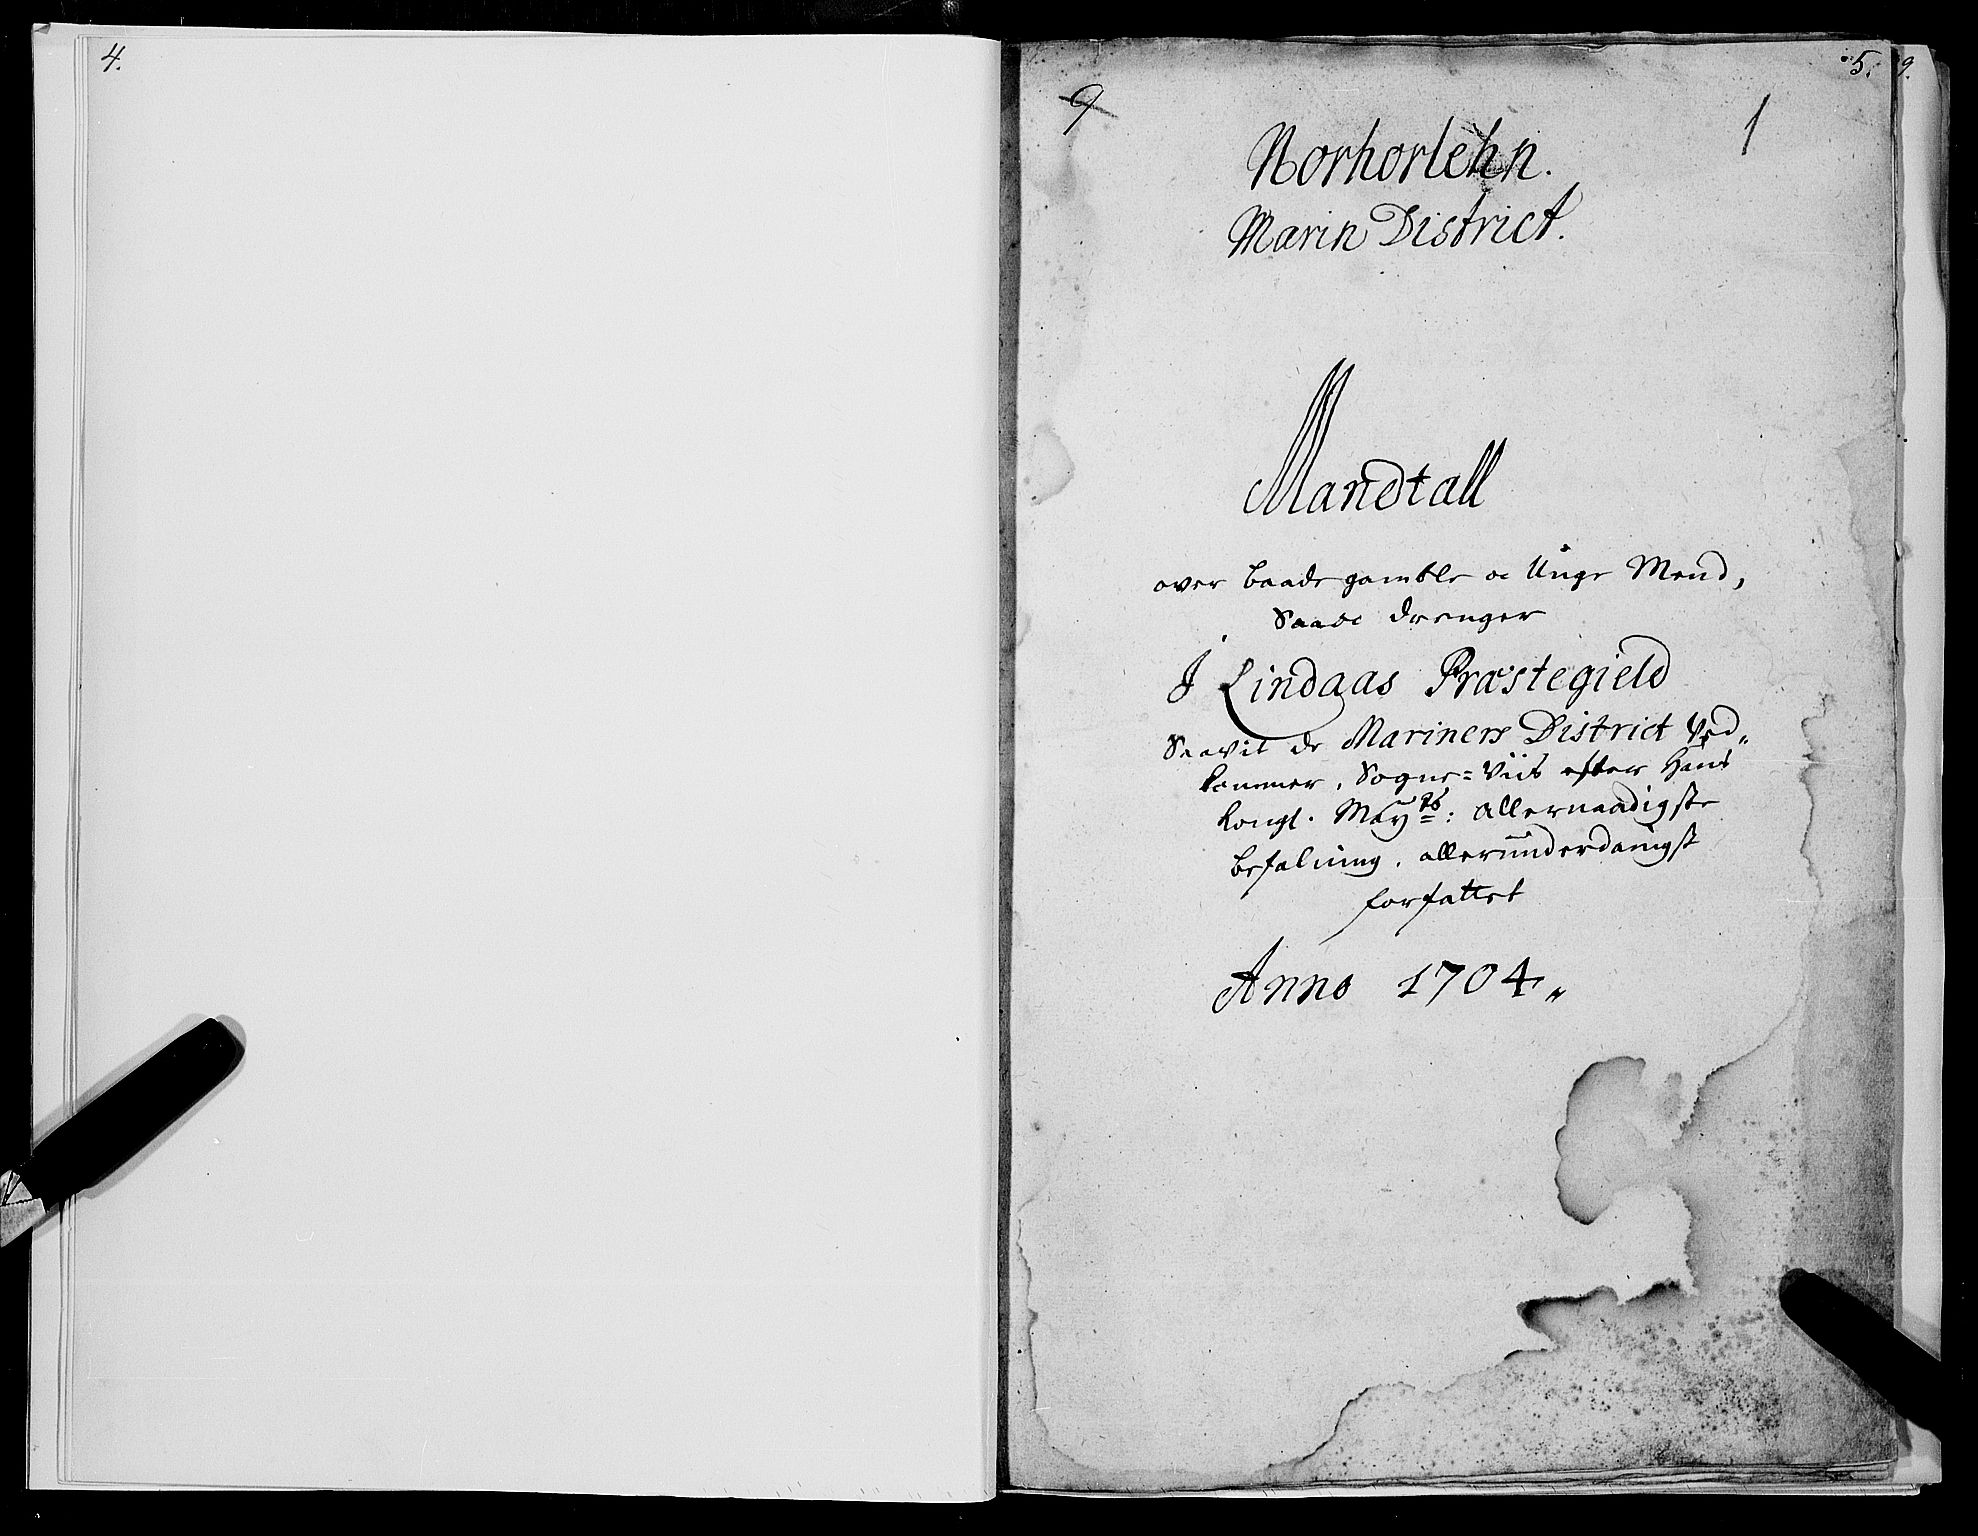 4.
5.
9.
9
1
Norhorlehn.
Marin District.
Mandtall
over baade gamble oc Unge Mend,
Saa oc drenger
J Lindaas Præstegield
Saavit de Mariners District Ved„
kommer, Sogne=Viis efter Hans
kongl. May.ts: allernaadigste
befalning, allerunderdanigst
forfattet
Anno 1704„